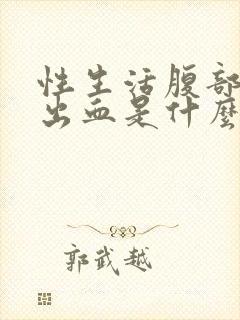 性生活腹部
出血是什麼
郭武越